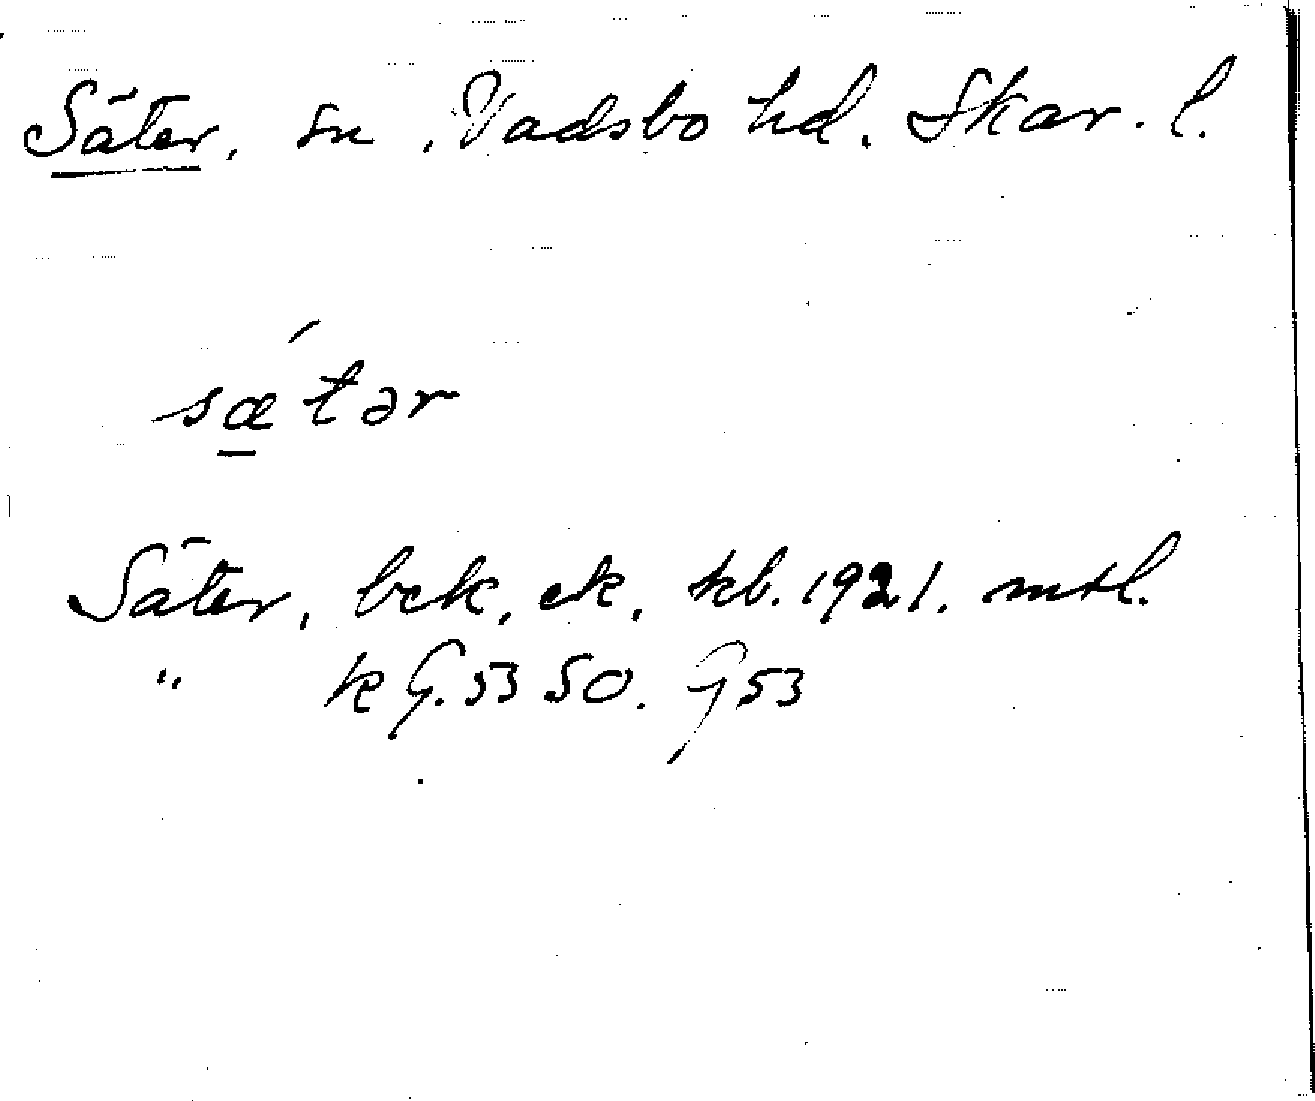 Säter, sn, Vadsbo hd. Skar. l.
sæ´tər
Säter, bek, ek, kb. 1921. mtl.
" k G. 53 SO. G 53